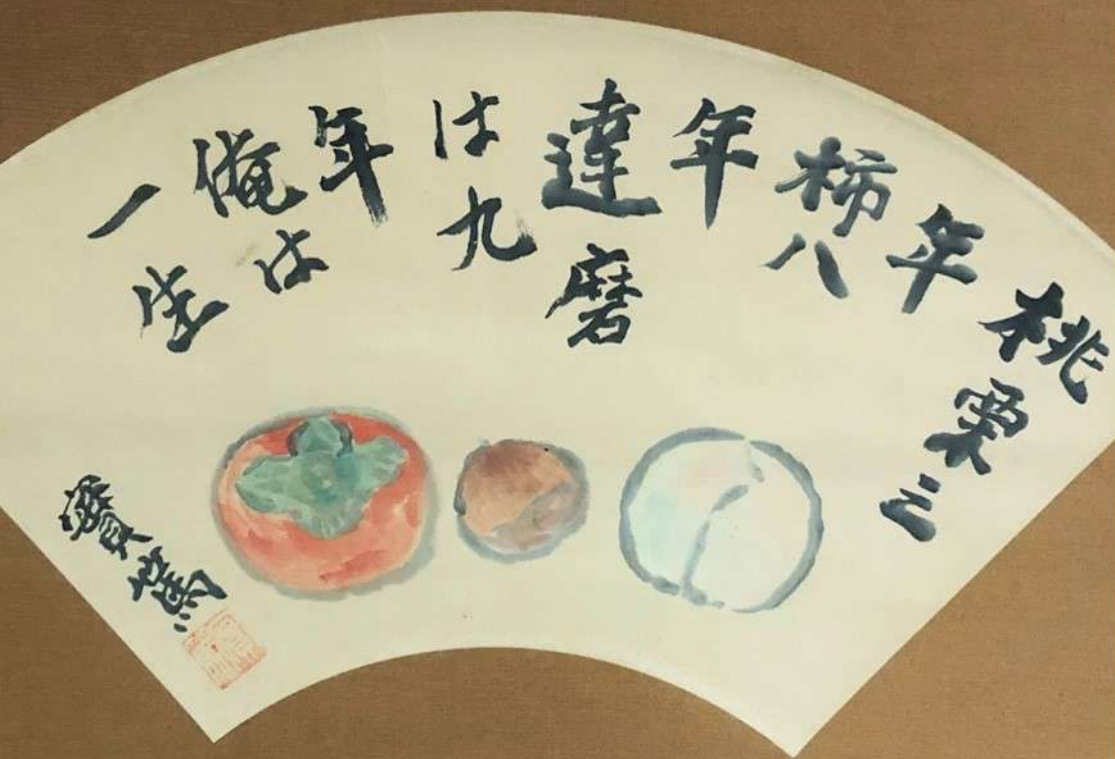 桃栗三
年
柿八
年
達磨
は九
年
俺は
一生
實篤